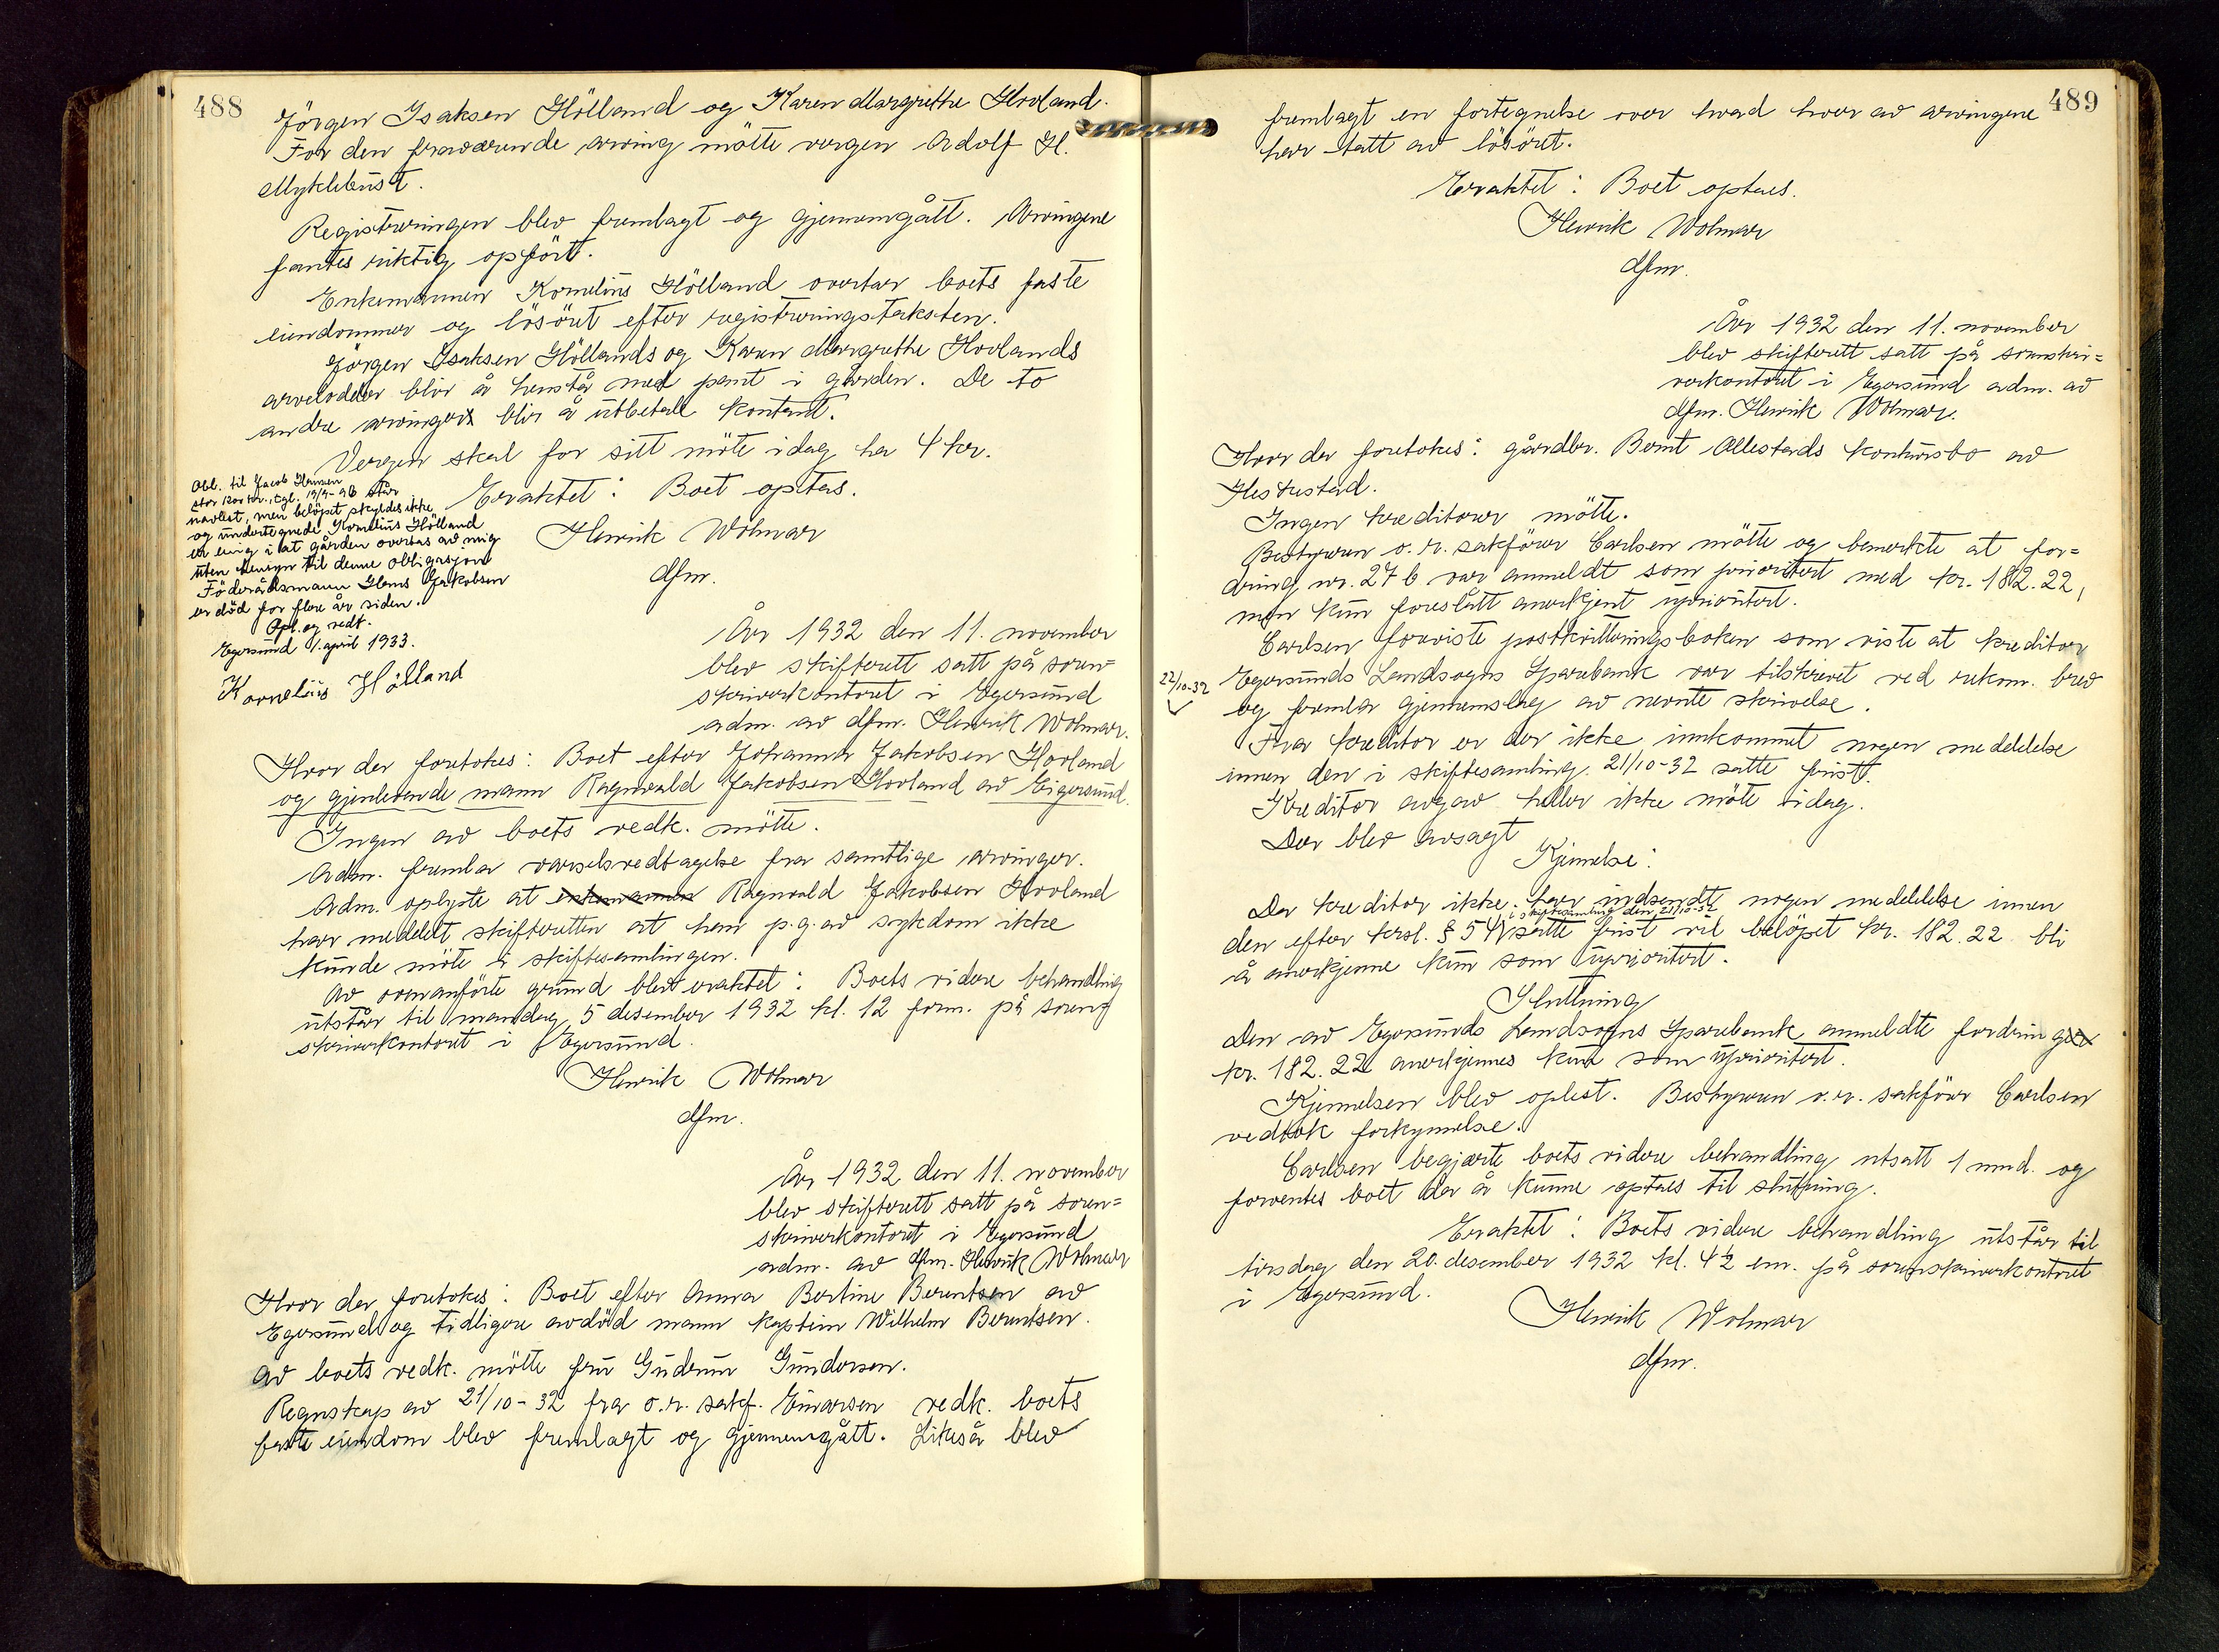 488
Jörgen Isaksen Hölland og Karen Margrethe Hovland.
For den fraværende arving mötte vergen Adolf H.
Myklebust.
Registreringen blev fremlagt og gjennemgått. Arvingene
fantes riktig opfört.
Enkemannen Kornelius Hölland overtar boets faste
eiendommer og lösöret efter registreringstaksten.
Jörgen Isaksen Höllands og Karen Margrethe Hovlands
arvelodder blir å henstå med pant i gården. De to
andre arvinger blir å utbetale kontant.
Vergen skal for sitt möte idag ha 4 kr.
Eraktet: Boet optas.
Henrik Wolmar
dfm.
Obl. til Jacob Hansen
stor 1200 kr., tgl. 19/9-96 står
uavlest, men belöpet skyldes ikke
og undertegnede Kornelius Hölland
er enig i at gården overtas av mig
uten hensyn til denne obligasjon
Föderådsmann Hans Jakobsen
er död for flere år siden.
Opl. og vedt.
Egersund 1. april 1933.
Kornelius Hölland
År 1932 den 11. november
blev skifterett satt på soren-
skriverkontoret i Egersund
adm. av dfm. Henrik Wolmar.
Hvor der foretokes: Boet efter Johanna Jakobsen Hovland
og gjenlevende mann Ragnvald Jakobsen Hovland av Eigersund.
Ingen av boets vedk. mötte.
Adm. fremla varselsvedtagelse fra samtlige arvinger.
Adm. oplyste at enkemannen Ragnvald Jakobsen Hovland
har meddelt skifteretten at han p.g.av sykdom ikke
kunde möte i skiftesamlingen.
Av ovenanförte grund blev eraktet: Boets videre behandling
utstår til mandag 5 desember 1932 kl. 12 form. på soren-
skriverkontoret i Egersund.
Henrik Wolmar
dfm.
År 1932 den 11. november
blev skifterett satt på soren-
skriverkontoret i Egersund
adm. av dfm. Henrik Wolmar
Hvor der foretokes: Boet efter Anna Bertine Berentsen av
Egersund og tidligere avdöd mann kaptein Wilhelm Berentsen.
Av boets vedk. mötte fru Gudrun Gundersen.
Regnskap av 21/10-32 fra o.r. sakf. Einarsen vedk. boets
faste eiendom blev fremlagt og gjennemgått. Likeså blev
489
fremlagt en fortegnelse over hvad hver av arvingene
har tatt av lösöret.
Eraktet: Boet optaes.
Henrik Wolmar
dfm.
År 1932 den 11. november
blev skifterett satt på sorenskri-
verkontoret i Egersund adm. av
dfm. Henrik Wolmar.
Hvor der foretokes: gårdbr. Bernt Ollestads konkursbo av
Hestestad.
Ingen kreditorer mötte.
Bestyreren o.r. sakförer Carlsen mötte og bemerkte at for-
dring nr. 27 b var anmeldt som prioritert med kr. 182.22,
men kun foreslått anerkjent uprioritert.
Carlsen foreviste postkvitteringsboken som viste at kreditor
22/10-32 Egersunds Landsogns Sparebank var tilskrevet ved rekom. brev
og fremla gjennemslag av nevnte skrivelse.
Fra kreditor er der ikke innkommet nogen meddelelse
innen den i skiftesamling 21/10-32 satte frist.
Kreditor avgav heller ikke möte idag.
Der blev avsagt
Kjennelse:
Da kreditor ikke har indsendt nogen meddelelse innen
i skiftesamling den 21/10-32
den efter krsl. § 54 satte frist vil belöpet kr. 182.22 bli
å anerkjenne kun som uprioritert.
Slutning
Den av Egersunds Landsogns Sparebank anmeldte fordring
kr. 182.22 anerkjennes kun som uprioritert.
Kjennelsen blev oplest. Bestyreren o.r. sakförer Carlsen
vedtok forkynnelse.
Carlsen begjærte boets videre behandling utsatt 1 mnd. og
forventes boet da å kunne optaes til slutning.
Eraktet: Boets videre behandling utstår til
tirsdag den 20. desember 1932 kl. 4½ em. på sorenskriverkontoret
i Egersund.
Henrik Wolmar
dfm.